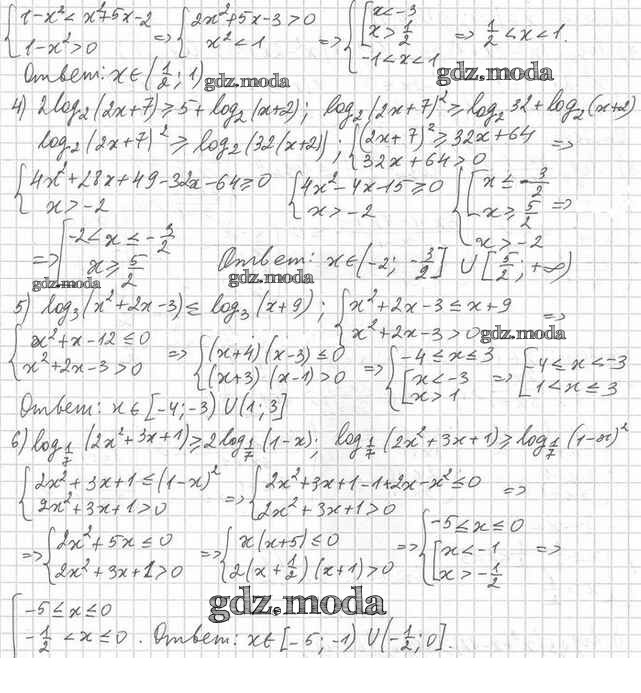 {1-x²<x²+5x-2 {2x²+5x-3>0 {[x<-3
{1-x²>0 => {x²<1 => {[x>1/2 => 1/2<x<1.
{-1<x<1
Ответ: x∈(1/2; 1)
gdz.moda
gdz.moda
4) 2log₂(2x+7)≥5+log₂(x+2); log₂(2x+7)²≥log₂32+log₂(x+2)
log₂(2x+7)²≥log₂(32(x+2)); {(2x+7)²≥32x+64 =>
{32x+64>0
{4x²+28x+49-32x-64≥0 {4x²-4x-15≥0 {[x≤-3/2
{x>-2 {x>-2 {[x≥5/2 =>
{x>-2
=> [-2<x≤-3/2
[x≥5/2 Ответ: x∈(-2; -3/2] ∪ [5/2; +∞)
gdz.moda
gdz.moda
5) log₃(x²+2x-3)≤log₃(x+9); {x²+2x-3≤x+9 =>
{x²+2x-3>0
gdz.moda
{x²+x-12≤0 => {(x+4)(x-3)≤0 => {-4≤x≤3 => [-4≤x<-3
{x²+2x-3>0 {(x+3)(x-1)>0 {[x<-3 [1<x≤3
{[x>1
Ответ: x∈[-4;-3)∪(1;3]
6) log₁/₇(2x²+3x+1)≥2log₁/₇(1-x); log₁/₇(2x²+3x+1)≥log₁/₇(1-x)²
{2x²+3x+1≤(1-x)² => {2x²+3x+1-1+2x-x²≤0 =>
{2x²+3x+1>0 {2x²+3x+1>0
=> {2x²+5x≤0 => {x(x+5)≤0 => {-5≤x≤0 =>
{2x²+3x+1>0 {2(x+1/2)(x+1)>0 {[x<-1
{[x>-1/2
gdz.moda
[-5≤x≤0
[-1/2<x≤0. Ответ: x∈[-5; -1)∪(-1/2; 0].